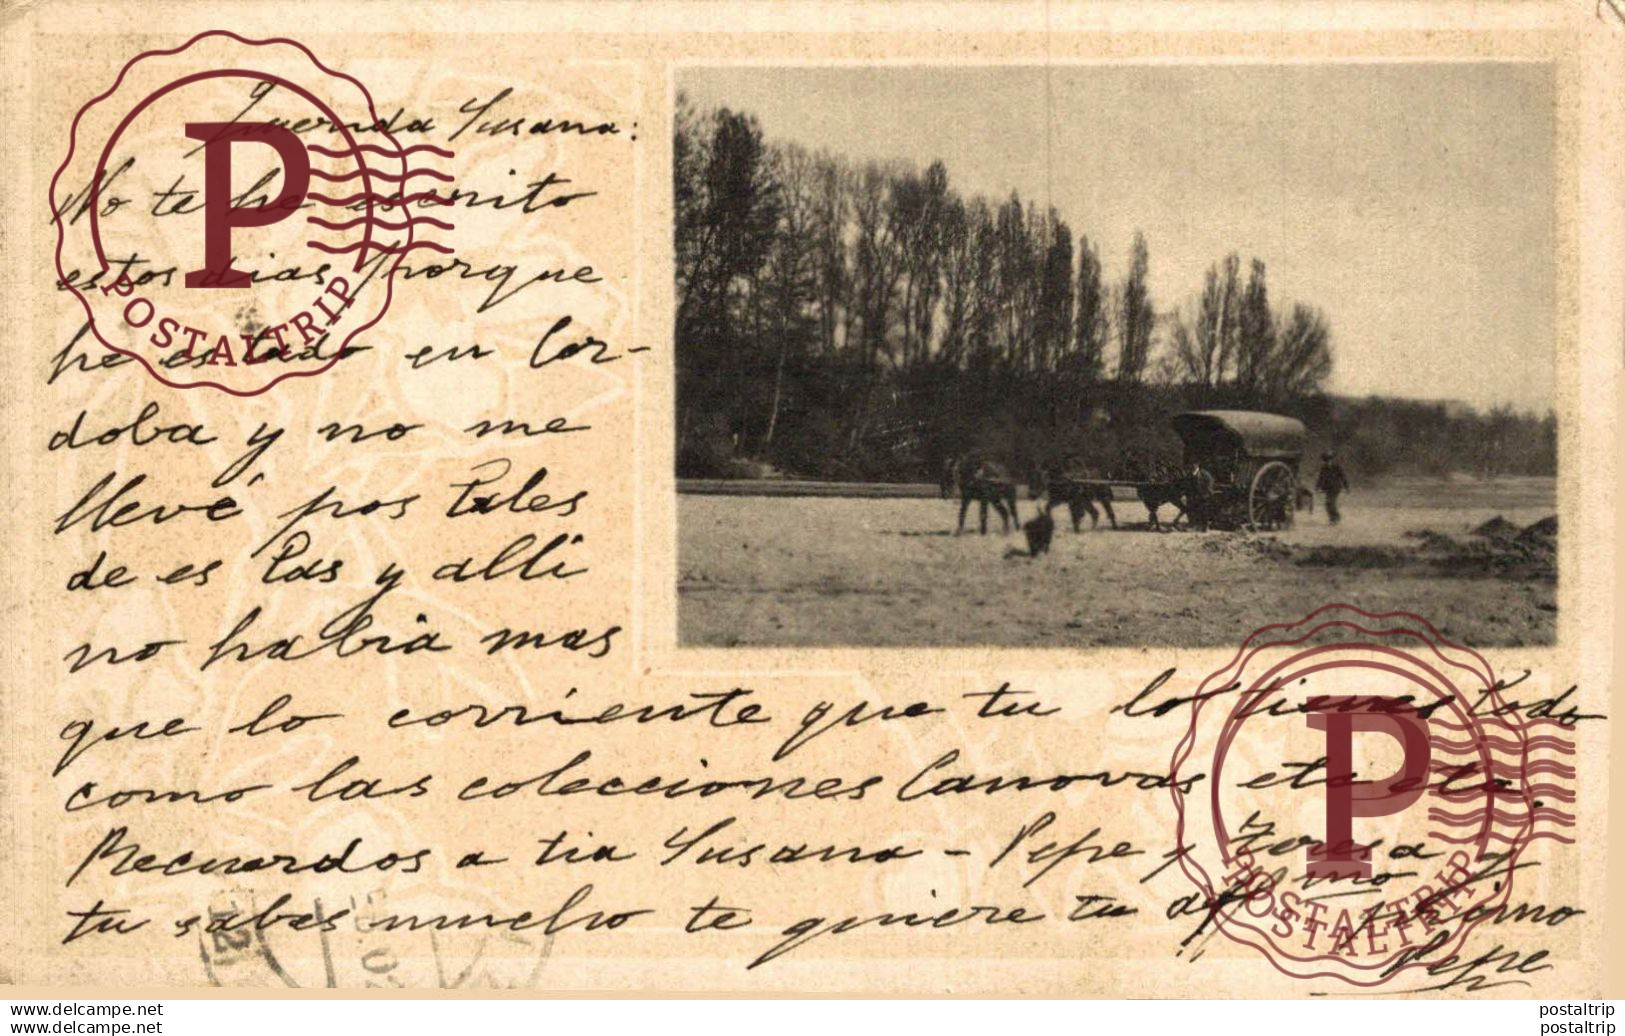 Querida Susana:
No te he escrito
estos dias porque
he estado en Cor-
doba y no me
llevé postales
de es tas y alli
no habia mas
que lo corriente que tu lo tienes todo
como las colecciones Canovas etc etc.
Recuerdos a tia Susana - Pepe y Teresa y
tu sabes mucho te quiere tu aff mo primo
Pepe
P
POSTALTRIP
P
POSTALTRIP
POSTALTRIP
www.delcampe.net
www.delcampe.net
postaltrip
postaltrip